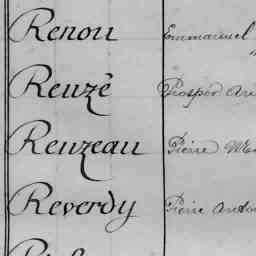 Renou Emmanuel
Reuzè Prosper
Reuzeau Pierre
Reverdy Pierre Antoi